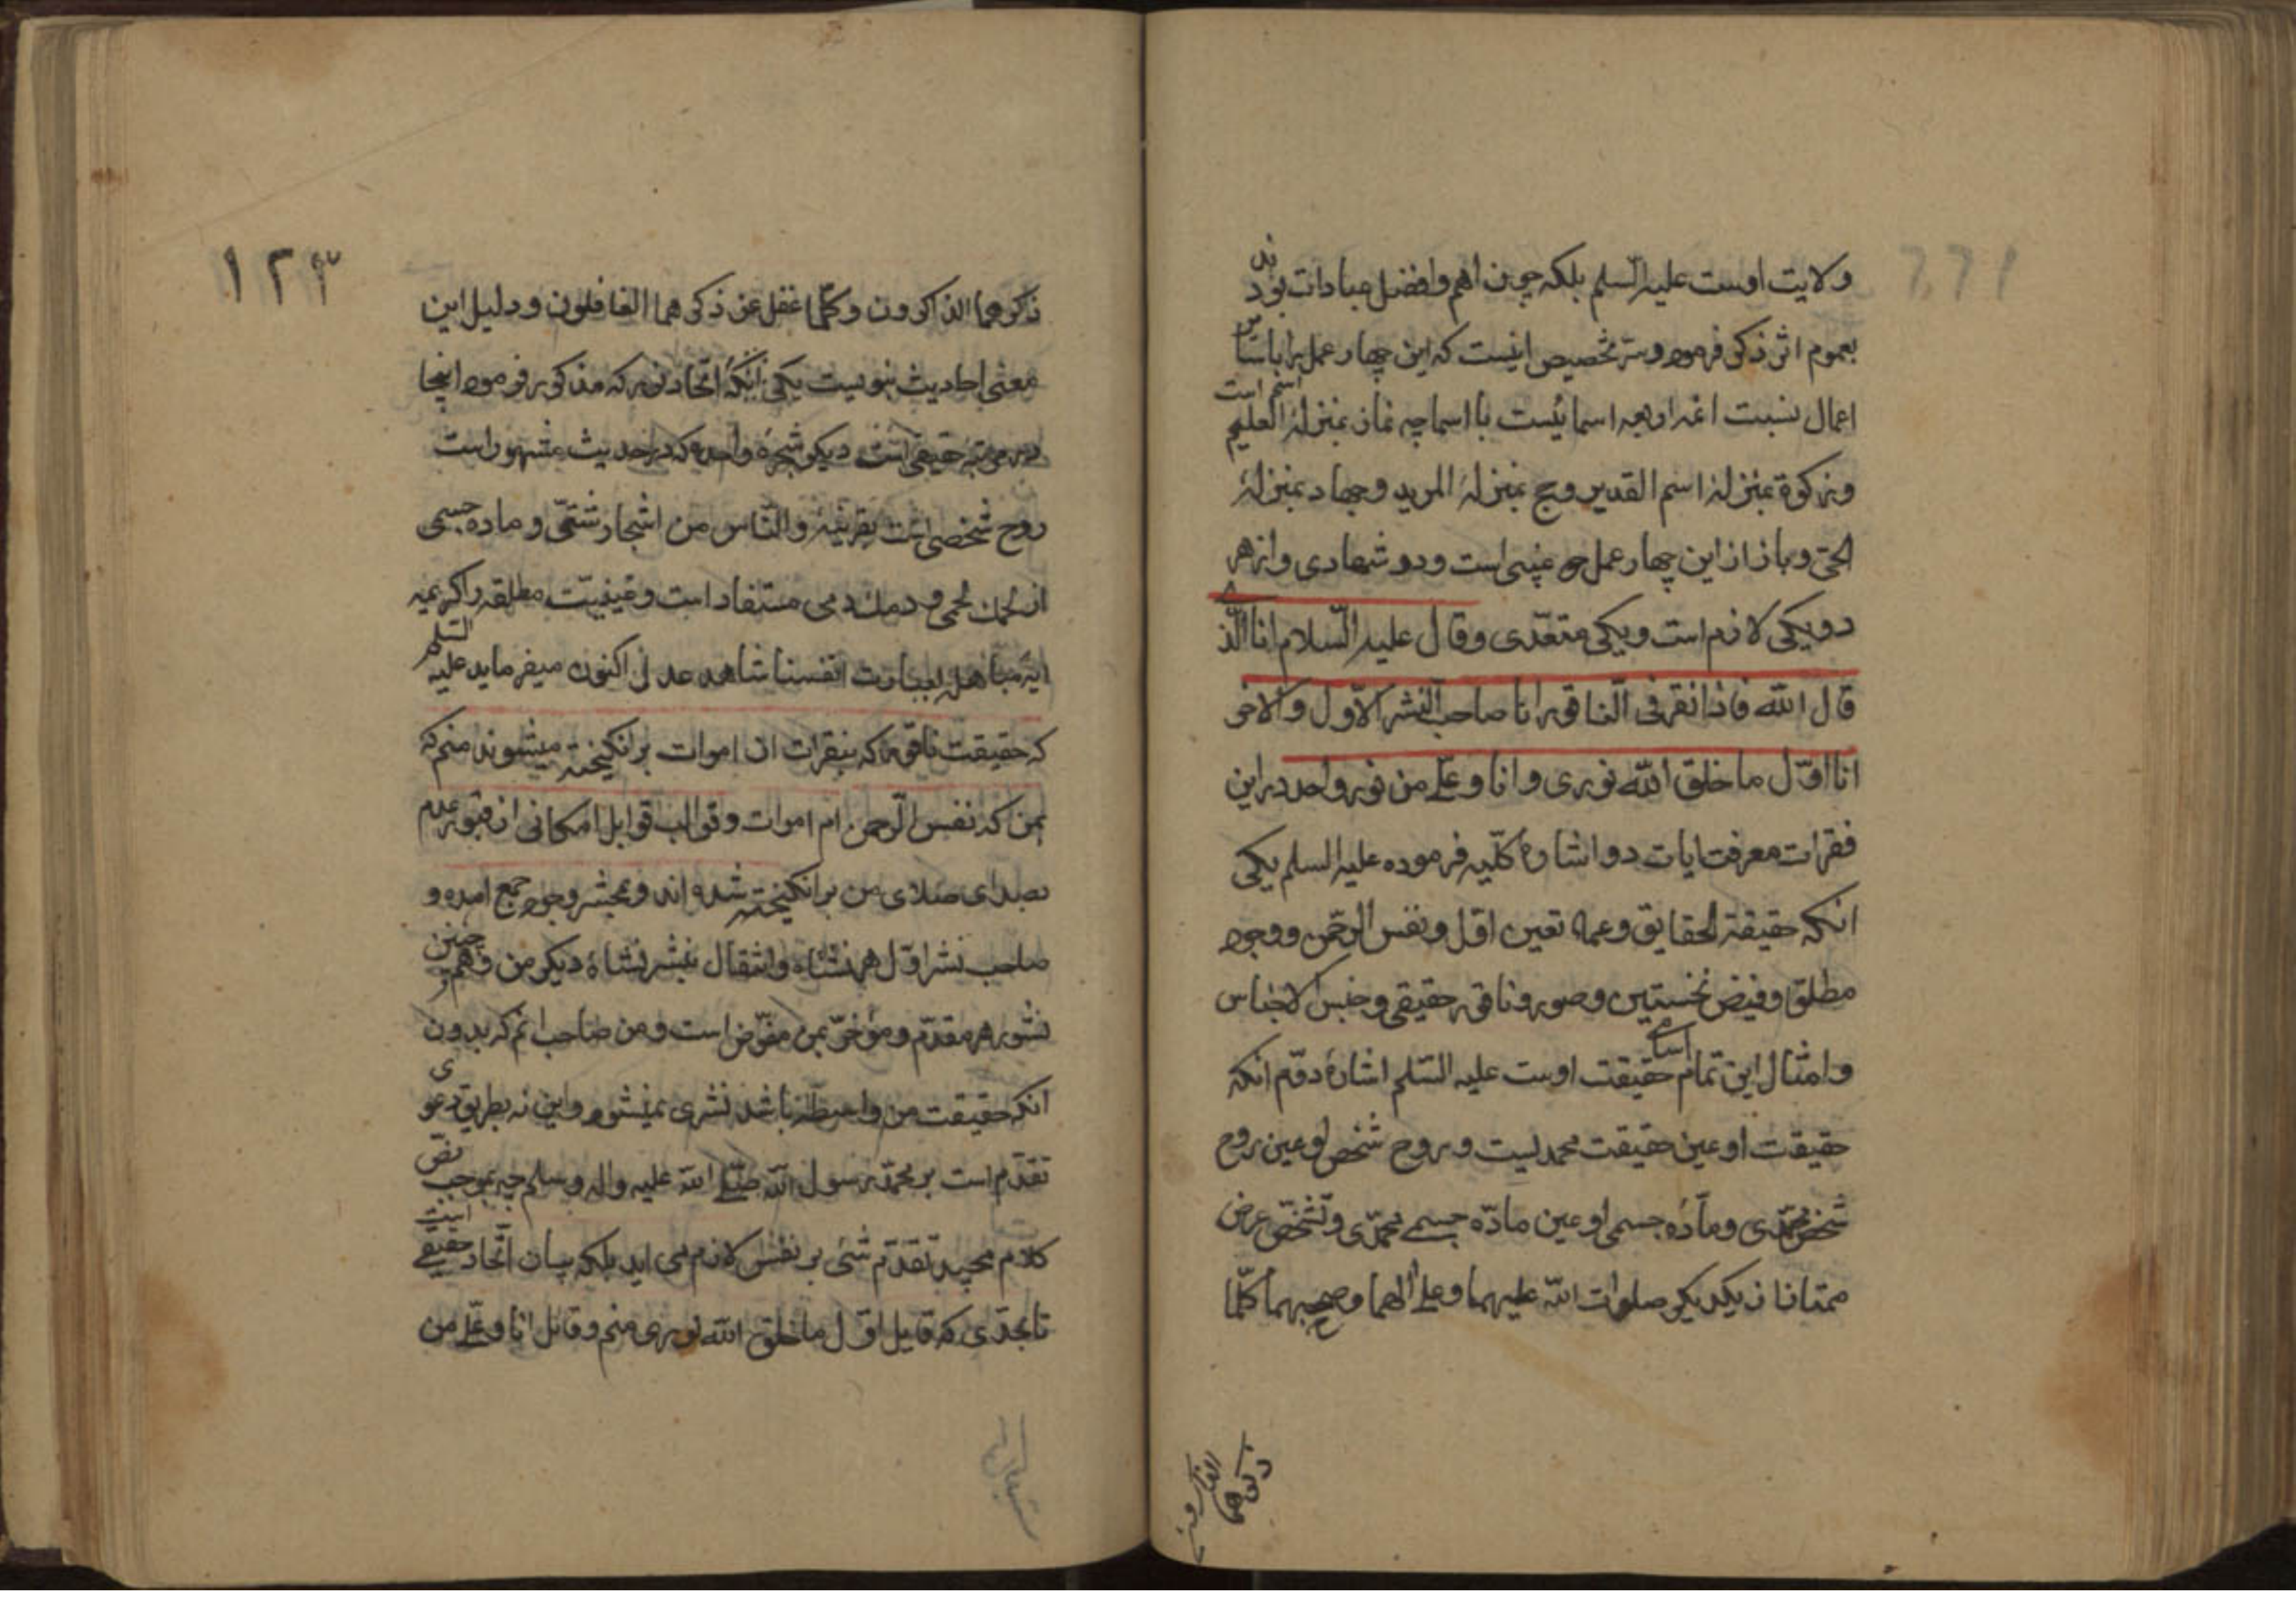 ولایت اوست علیه السلم بلکه چون اهم وافضل عبادات بودند
بعموم اثر ذکر فرموده وسر تخصیص اینست که این چهار عمل را باسایر
اعمال نسبت ائمه اربعه اسمائیست با اسما چه نماز بمنزلهٔ اسم العلیم است
وزکوة بمنزلهٔ اسم القدیر وحج بمنزلهٔ المرید وجهاد بمنزلهٔ
الحی وباز از این چهار عمل دو غیبی است ودو شهادی واز هر
دو یکی لازم است ویکی متعدّی وقال علیه السّلام انا الّذی
قال الله فاذا نقر فی النّاقور انا صاحب النشر الاوّل والاخر
انا اوّل ما خلق الله نوری وانا وعلی من نور واحد در این
فقرات معرفت ایات دو اشارهٔ کلّیه فرموده علیه السلم یکی
انکه حقیقة الحقایق وعماء وتعین اوّل ونفس الرحمن ووجود
مطلق وفیض نخستین وصور وناقور حقیقی وجنس الاجناس
وامثال این تمام اسامی حقیقت اوست علیه السّلم اشارهٔ دوّم انکه
حقیقت او عین حقیقت محمدیست وروح شخص او عین روح
شخص محمّدی ومادّه جسمی او عین مادّه جسمی محمّدی وتشخّص عرض
ممتاز از یکدیکر صلوات الله علیهما وعلی الهما وصحبهما کلّما
ذکرهما الذاکرون
۱۲۳
ذکرهما الذاکرون وکلّما غفل عن ذکرهما الغافلون ودلیل این
معنی احادیث نبویست یکی آنکه اتحاد نور که مذکور فرموده اینجا
در مرتبهٔ حقیقی است دیکر شجرهٔ واحده که در حدیث مشهور است
روح شخصی است بقرینهٔ والنّاس من اشجار شتّی وماده جسمی
از لحمک لحمی ودمک دمی مستفاد است وعینیّت مطلقه را کریمه
ایهٔ مباهله بعبارت انفسنا شاهد عدل اکنون میفرماید علیه السّلم
که حقیقت ناقور که بنقرات ان اموات برانکیخته میشوند منم که
بمن که نفس الرّحمن ام اموات وقوالب قوابل امکانی از قبور عدم
بصدای صلای من برانکیخته شده اند وبمحشر وجود جمع امده و
صاحب نشر اوّل هر نشاه وانتقال بنشر نشاهٔ دیکر من وهمچنین
نشور هر مقدّم ومؤخّر بمن مفوّض است ومن صاحب انم که بدون
انکه حقیقت من واسطه باشد نشری نمیشود واین نه بطریق دعوی
تقدّم است بر محمّد رسول الله صلّی الله علیه واله وسلم چه بموجب نصّ
کلام مجید تقدّم شئ بر نفس لازم می اید بلکه بیان اتّحاد حقیقی است
تا بحدّی که قایل اوّل ما خلق الله نوری منم وقائل انا وعلّی من